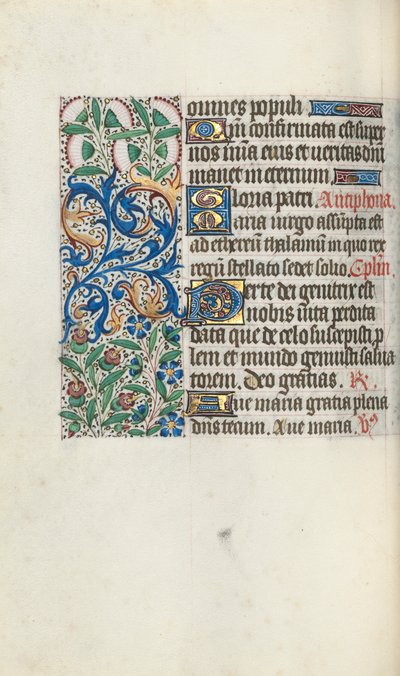 omnes populi.
Qm̄ confirmata est super
nos mīa eius et ueritas dni
manet in eternum.
Gloria patri. Antiphona.
Maria uirgo assūpta est
ad ethereū thalamū in quo rex
regū stellato sedet solio. Cplm̄.
Per te dei genitrix est
nobis uita perdita
data que de celo suscepisti p
lem et mundo genuisti salua
torem. Deo gratias. R.
Aue maria gratia plena
dns tecum. Aue maria. V